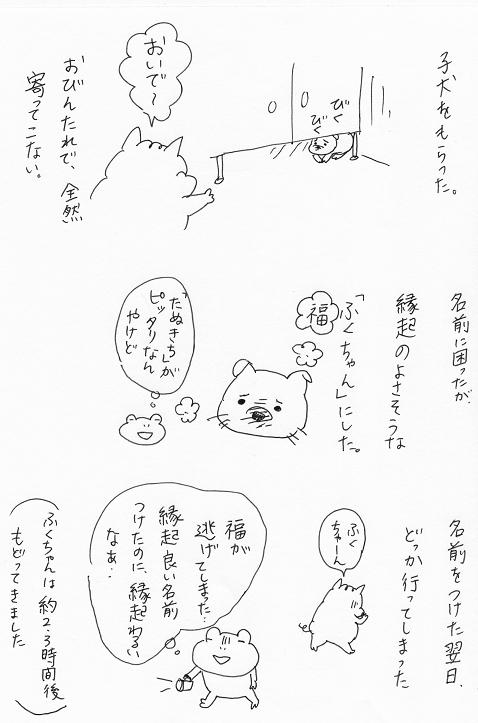 子犬をもらった。
びく
びく
おいで〜
おびんたれで、全然
寄ってこない。
名前に困ったが、
縁起のよさそうな
「ふくちゃん」にした。
福
「たぬきち」が
ピッタリなん
やけど
名前をつけた翌日、
どっか行ってしまった
ふく
ちゃーん
福が
逃げてしまった…
縁起良い名前
つけたのに、縁起わるい
なぁ…
ふくちゃんは約2.3時間後
もどってきました